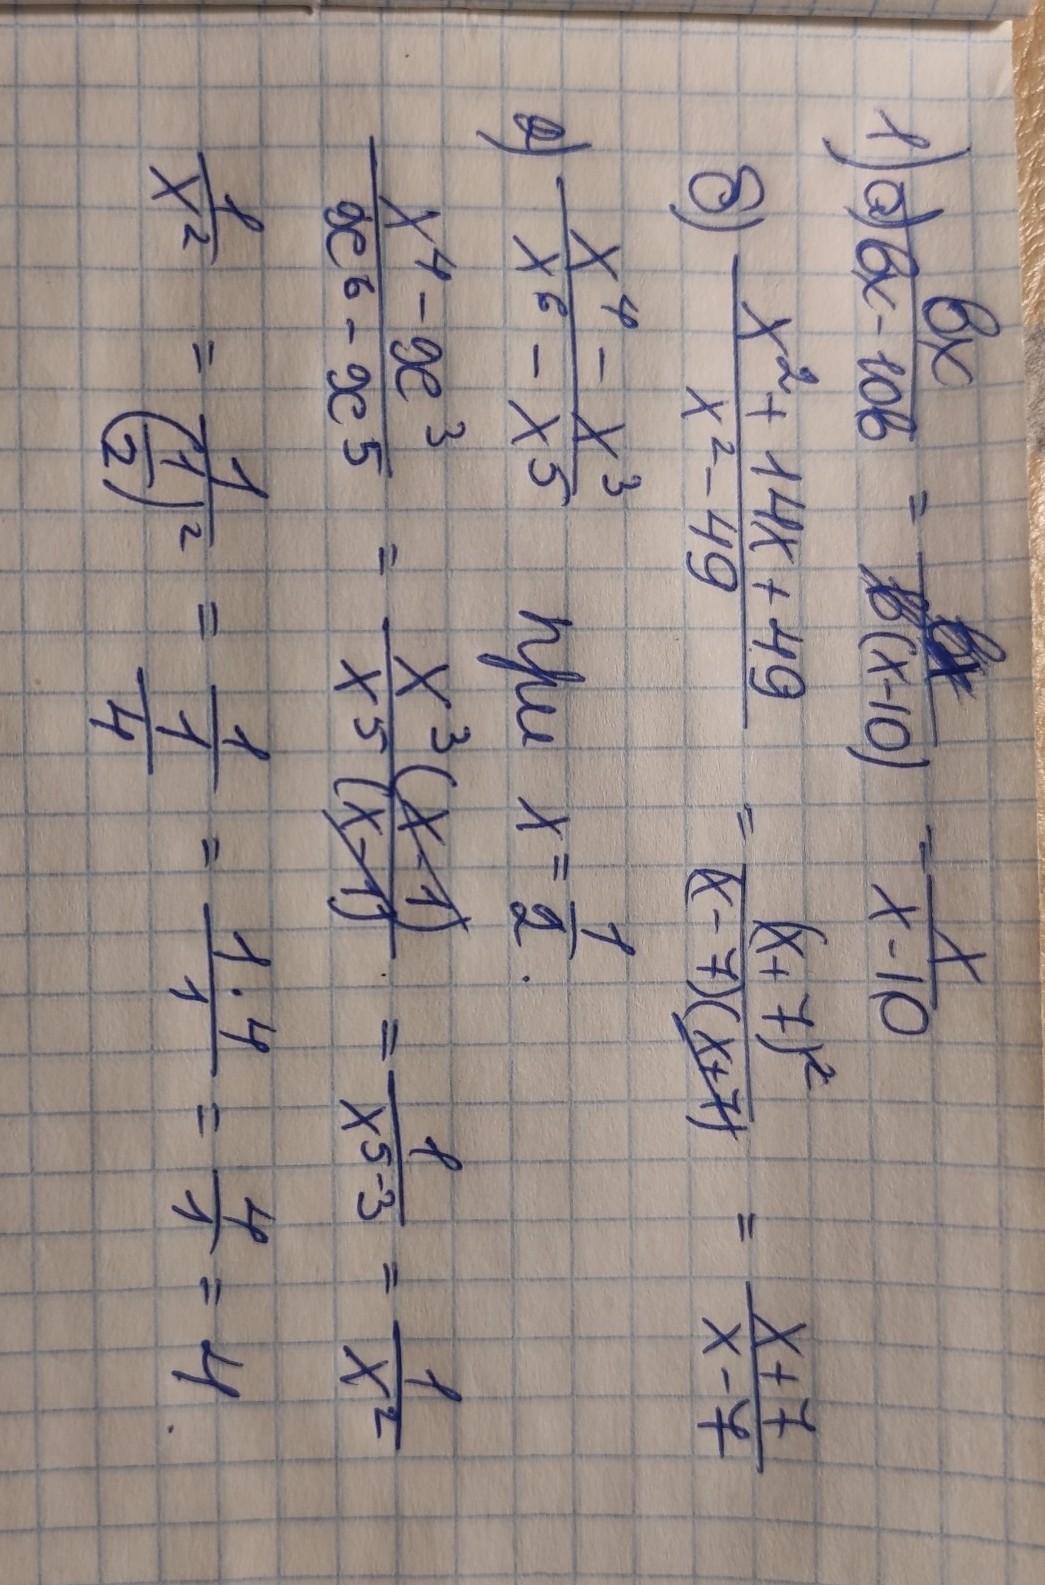 1) a) bx/(bx - 10b) = bx/(b(x-10)) - x/(x-10)
б) (x² + 14x + 49)/(x² - 49) = (x+7)²/((x-7)(x+7)) = (x+7)/(x-7)
2) (x⁴ - x³)/(x⁶ - x⁵) при x = 1/2.
(x⁴ - x³)/(x⁶ - x⁵) = x³(x-1)/(x⁵(x-1)) = 1/x⁵⁻³ = 1/x²
1/x² = 1/(1/2)² = 1/(1/4) = 1·4/1 = 4/1 = 4.